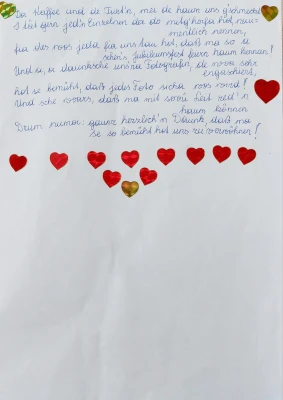 Da Kaffee und de Tuat'n, mei de haum uns gschmeckt
I tät gern jed'n Einzelnen da do mitg'horfa hot, nau-
mentlich nennen,
fia des wos jeda fia uns tau hot, daß ma so a
schen's Jubiläumsfest feiern haum kennen!
Und a, a daunksche unsra Fotografin, sie woa sehr
engaschiert,
hot se bemüht, daß jed's Foto sicha wos wird!
Und sche woars, daß ma mit sovü Leit red'n
haum können
Drum numoi gaunz herzlich'n Daunk, daß ma
se so bemüht hot uns zu verwöhnen!